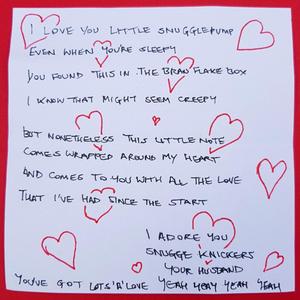 I LOVE YOU LITTLE SNUGGLEPUMP
EVEN WHEN YOU'RE SLEEPY
YOU FOUND THIS IN THE BRAN FLAKE BOX
I KNOW THAT MIGHT SEEM CREEPY
BUT NONETHELESS THIS LITTLE NOTE
COMES WRAPPED AROUND MY HEART
AND COMES TO YOU WITH ALL THE LOVE
THAT I'VE HAD SINCE THE START
I ADORE YOU
SNUGGE KNICKERS
YOUR HUSBAND
YOU'VE GOT LOTS 'A' LOVE YEAH YEAH YEAH YEAH